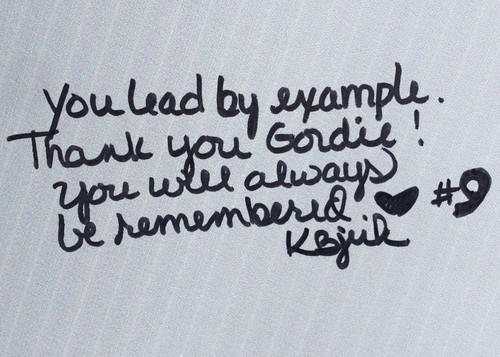 You lead by example.
Thank you Gordie!
You will always
be remembered ♥ #9